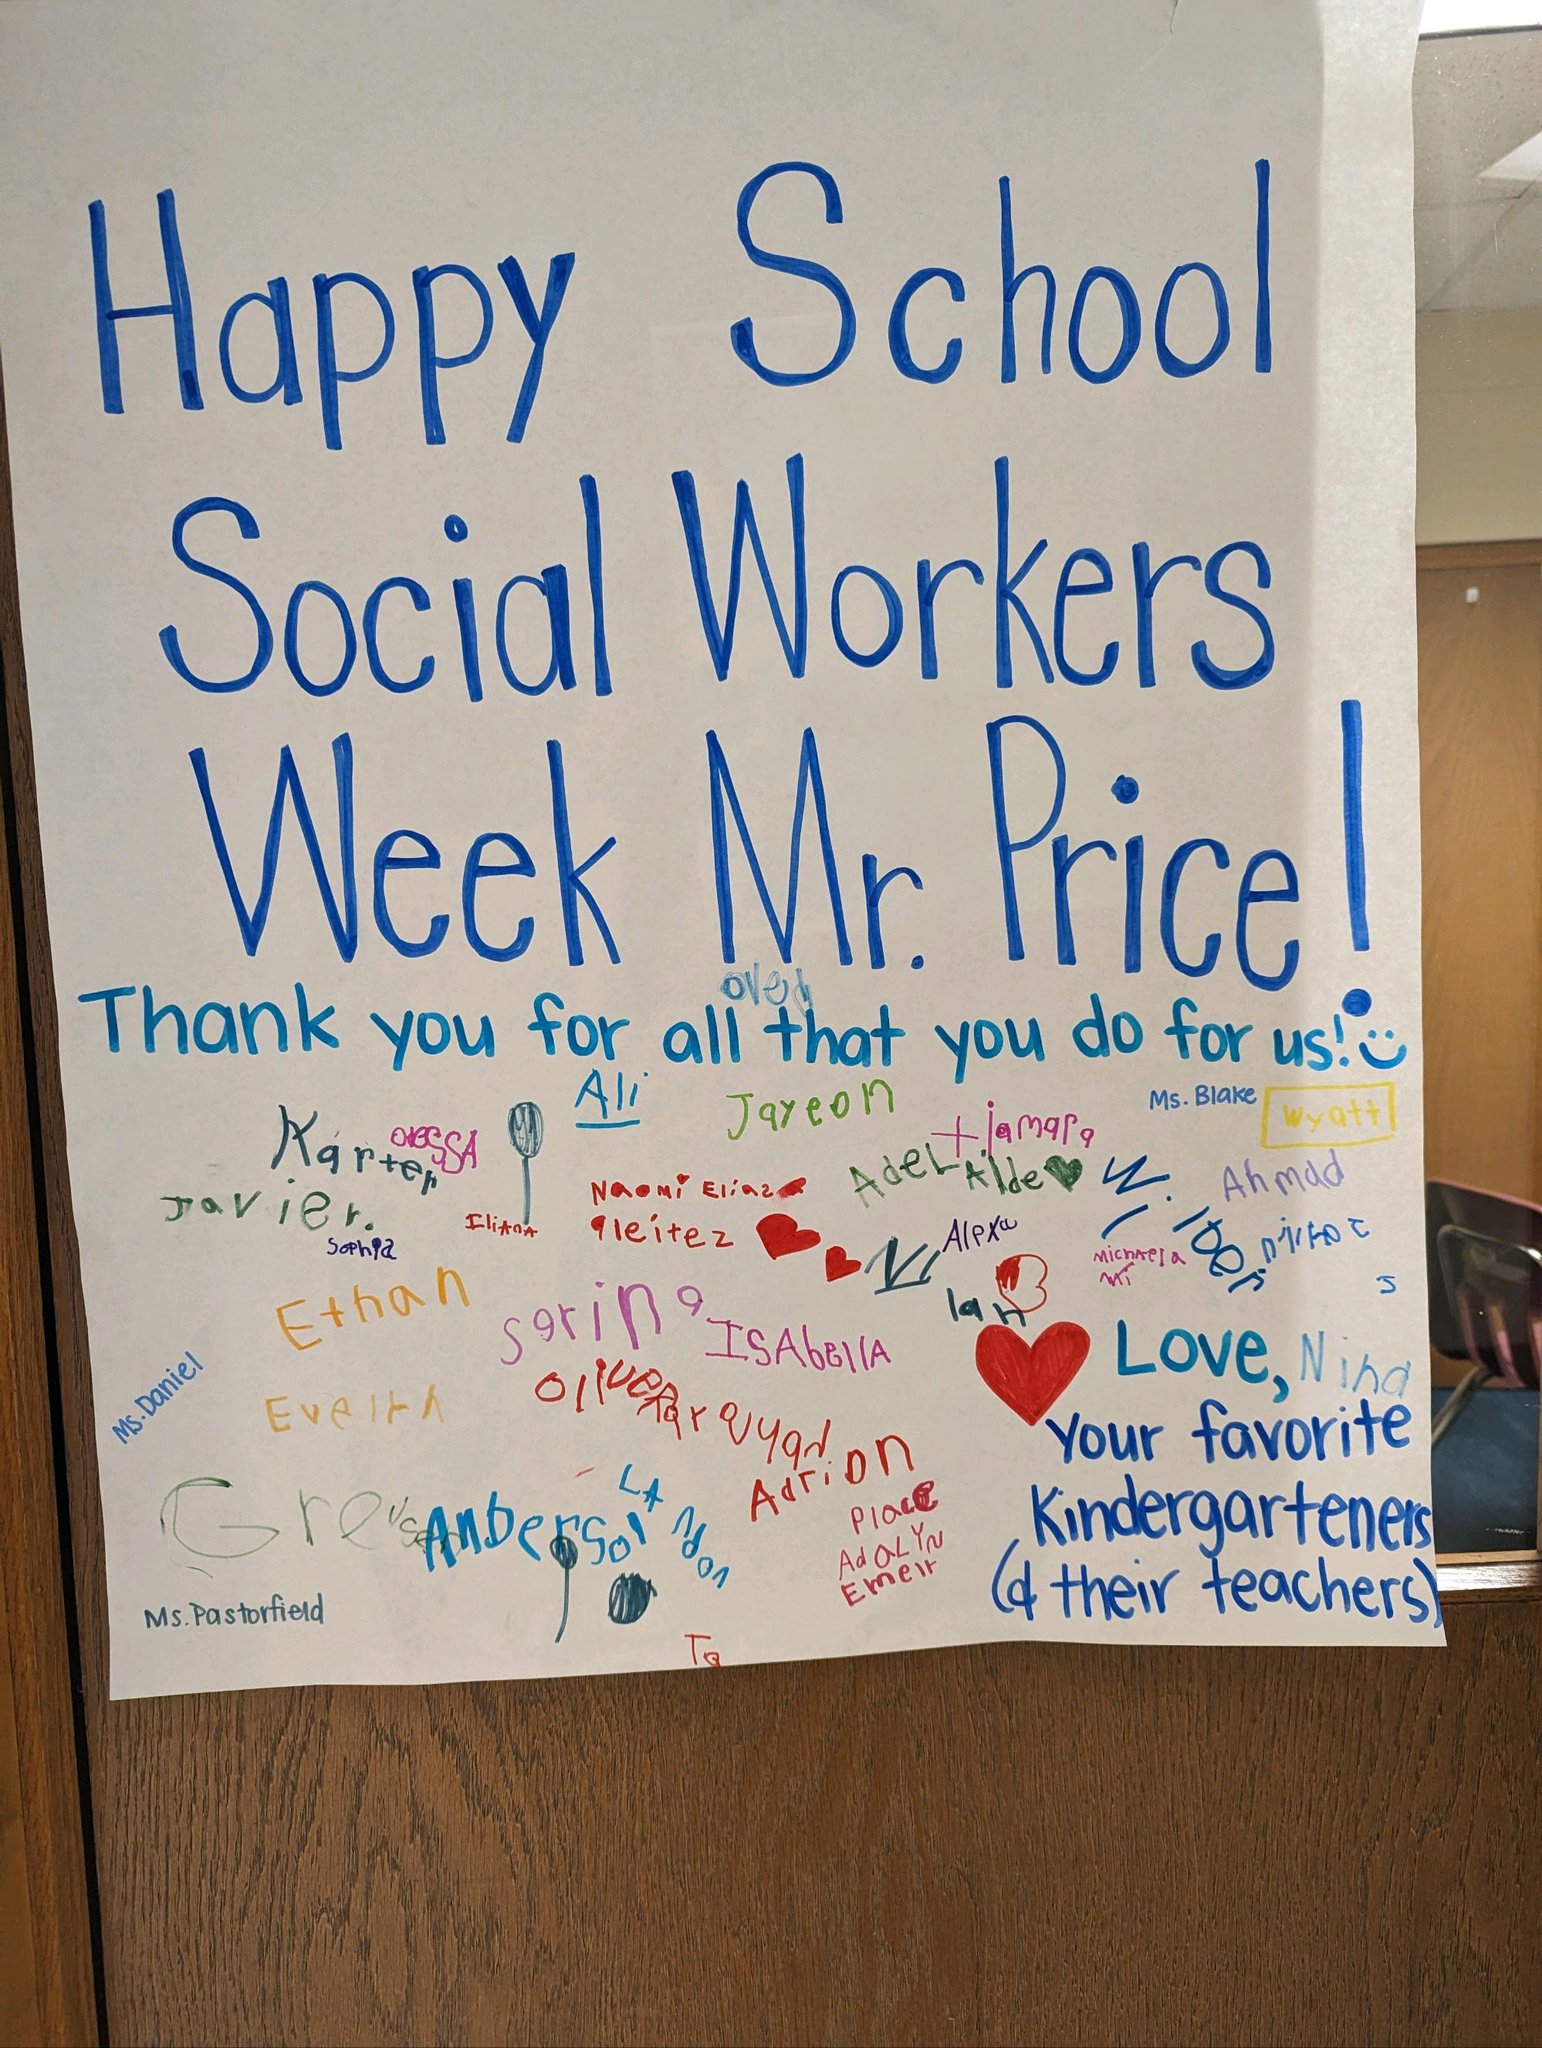 Happy School
Social Workers
Week Mr. Price!
oved
Thank you for all that you do for us!
Ali
Jayeon
Ms. Blake
Wyatt
Karter
Javier.
Sophia
IliANA
Naomi Eliaz
Adel
Alde
Ahmad
Alexa
Michaela
Ethan
Sarina
ISAbellA
Ian
Love, Nina
Your favorite
Kindergarteners
(& their teachers)
Ms. Daniel
Oliver
Adrion
LANdon
Anderson
AdALYN
Emeir
Ms. Pastorfield
Ta